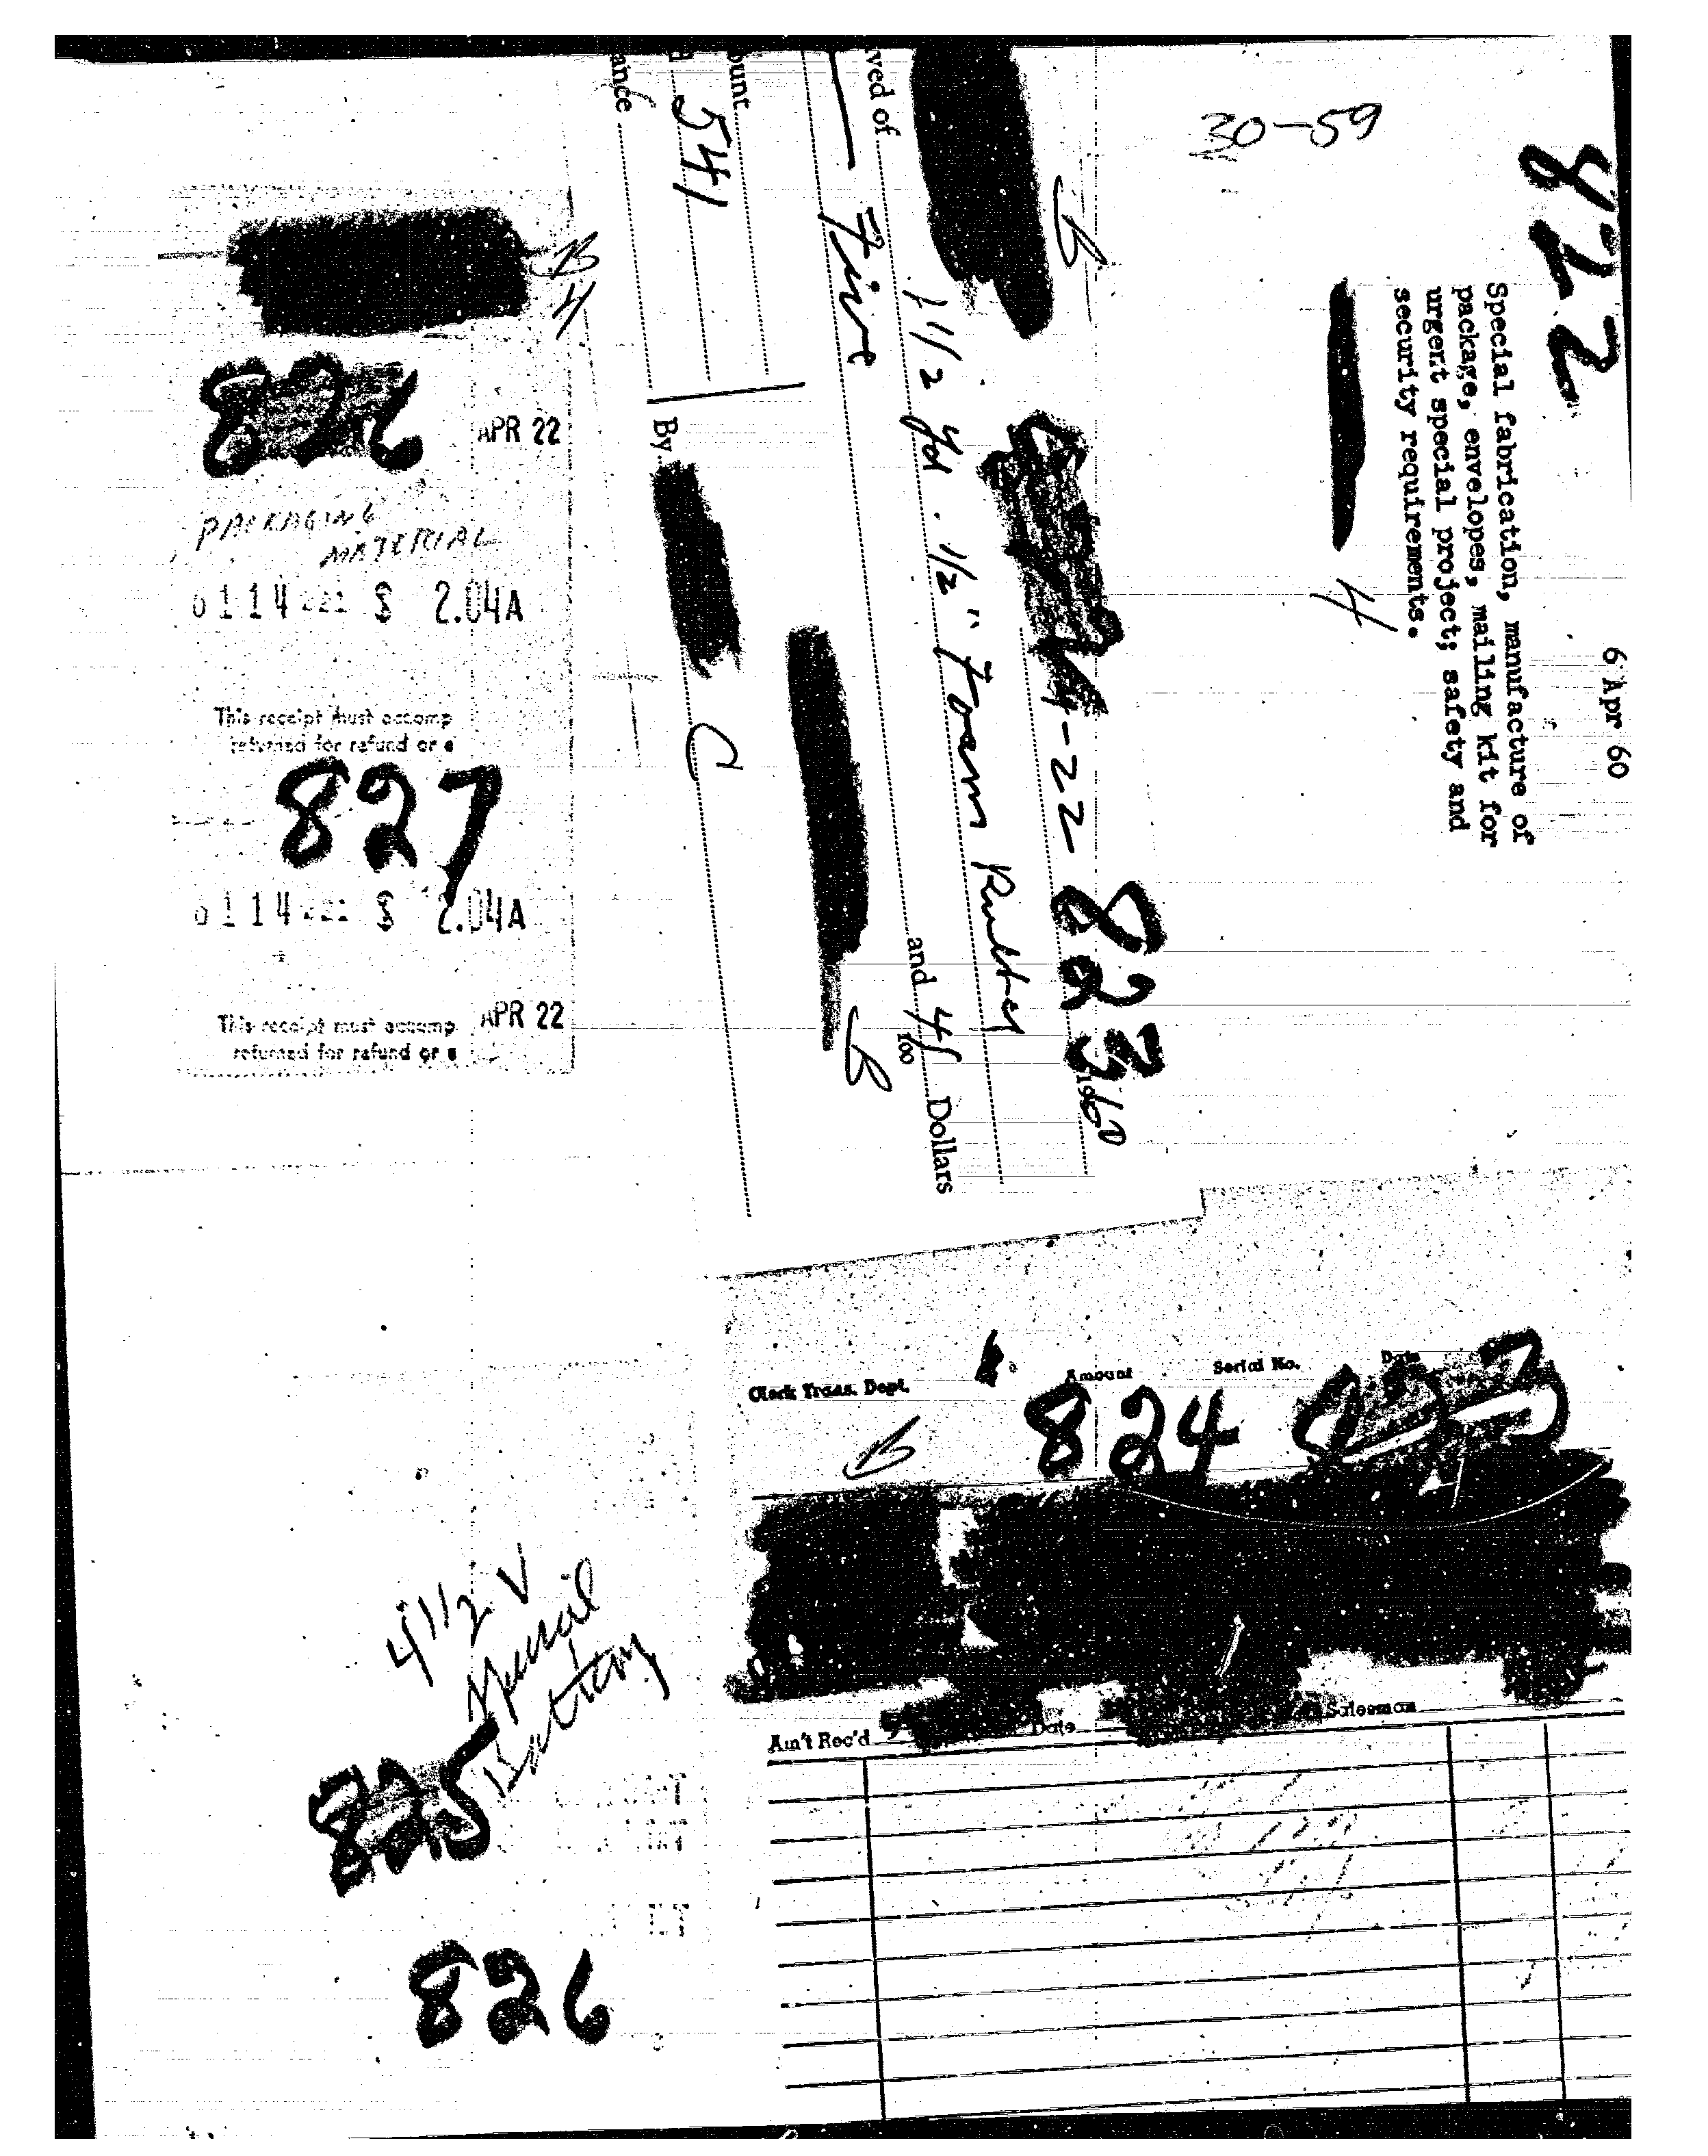 30-59
822
6 Apr 60
Special fabrication, manufacture of
package, envelopes, mailing kit for
urgent special project; safety and
security requirements.
4
B
4-22 823 1960
ved of
1 1/2 yd. 1/2" Foam Rubber
Five and 45/100 Dollars
B
ount
541
ance
By C
B
4
826
APR 22
PACKAGING
MATERIAL
6114 221 $ 2.04A
This receipt must accomp
returned for refund or e
827
6114 221 $ 2.04A
APR 22
This receipt must accomp.
returned for refund or e
Clerk Trans. Dept. Amount Serial No. Date
B 824
Am't Rec'd Date Salesman
4 1/2 V
Special
Battery
825
826